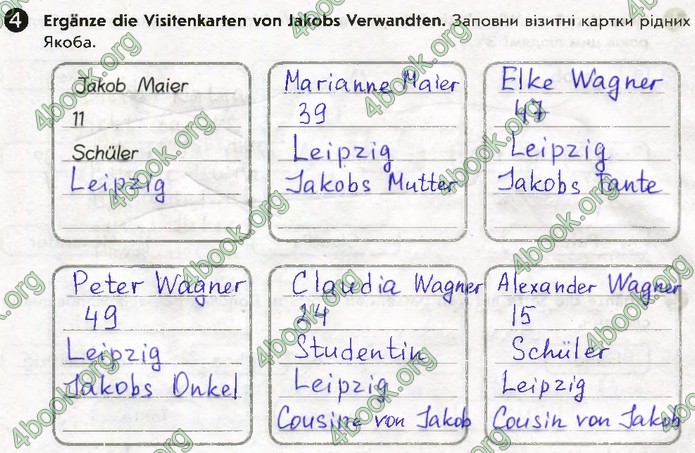 4 Ergänze die Visitenkarten von Jakobs Verwandten. Заповни візитні картки рідних
Якоба.
Jakob Maier
11
Schüler
Leipzig
Marianne Maier
39
Leipzig
Jakobs Mutter
Elke Wagner
47
Leipzig
Jakobs Tante
Peter Wagner
49
Leipzig
Jakobs Onkel
Claudia Wagner
24
Studentin
Leipzig
Cousine von Jakob
Alexander Wagner
15
Schüler
Leipzig
Cousin von Jakob
4book.org
4book.org
4book.org
4book.org
4book.org
4book.org
4book.org
4book.org